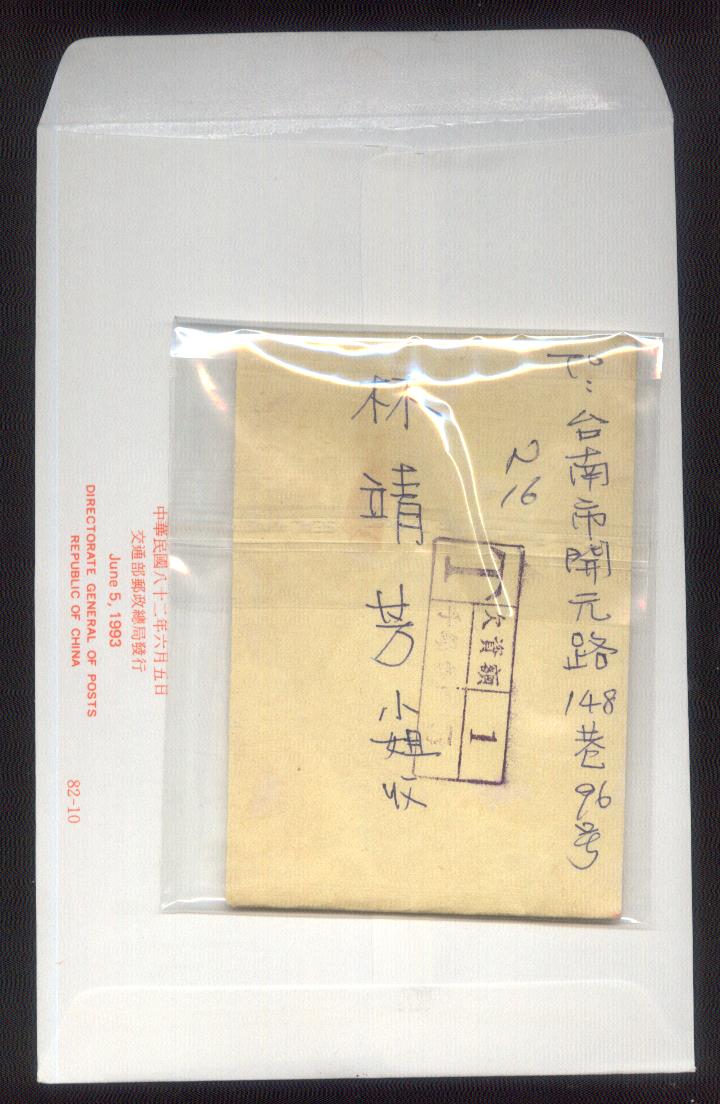 台南市開元路148巷96号
26
林 小姐 收
T
欠資額 1
中華民國八十二年六月五日
交通部郵政總局發行
June 5, 1993
DIRECTORATE GENERAL OF POSTS
REPUBLIC OF CHINA
82-10